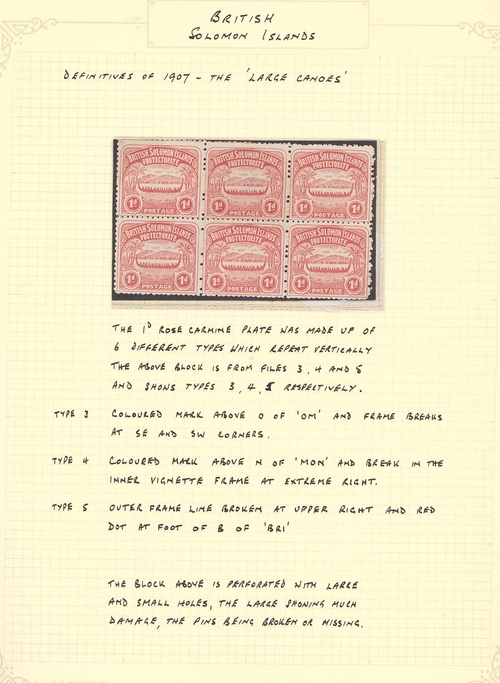 BRITISH
SOLOMON ISLANDS
DEFINITIVES OF 1907 - THE 'LARGE CANOES'
BRITISH SOLOMON ISLANDS BRITISH SOLOMON ISLANDS BRITISH SOLOMON ISLANDS
PROTECTORATE PROTECTORATE PROTECTORATE
1d 1d 1d 1d 1d 1d
POSTAGE POSTAGE POSTAGE
BRITISH SOLOMON ISLANDS BRITISH SOLOMON ISLANDS BRITISH SOLOMON ISLANDS
PROTECTORATE PROTECTORATE PROTECTORATE
1d 1d 1d 1d 1d 1d
POSTAGE POSTAGE POSTAGE
THE 1D ROSE CARMINE PLATE WAS MADE UP OF
6 DIFFERENT TYPES WHICH REPEAT VERTICALLY
THE ABOVE BLOCK IS FROM FILES 3, 4 AND 5
AND SHOWS TYPES 3, 4, 5 RESPECTIVELY.
TYPE 3 COLOURED MARK ABOVE O OF 'OM' AND FRAME BREAKS
AT SE AND SW CORNERS.
TYPE 4 COLOURED MARK ABOVE N OF 'MON' AND BREAK IN THE
INNER VIGNETTE FRAME AT EXTREME RIGHT.
TYPE 5 OUTER FRAME LINE BROKEN AT UPPER RIGHT AND RED
DOT AT FOOT OF B OF 'BRI'
THE BLOCK ABOVE IS PERFORATED WITH LARGE
AND SMALL HOLES, THE LARGE SHOWING MUCH
DAMAGE, THE PINS BEING BROKEN OR MISSING.